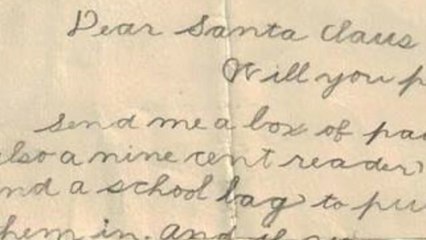 Dear Santa Claus
Will you p
send me a box of pai
also a nine cent reader
nd a school bag to pu
hem in. and if